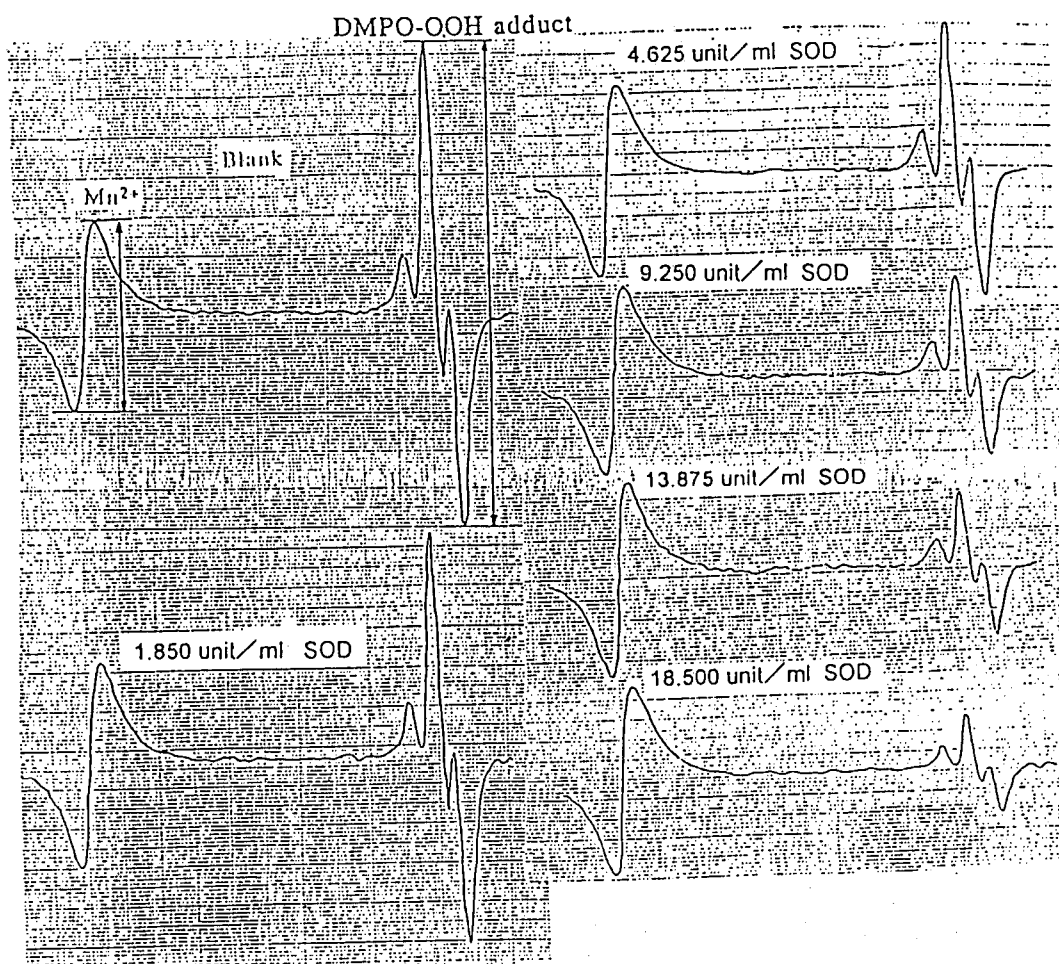 DMPO-OOH adduct
Blank
Mn²⁺
1.850 unit/ml SOD
4.625 unit/ml SOD
9.250 unit/ml SOD
13.875 unit/ml SOD
18.500 unit/ml SOD